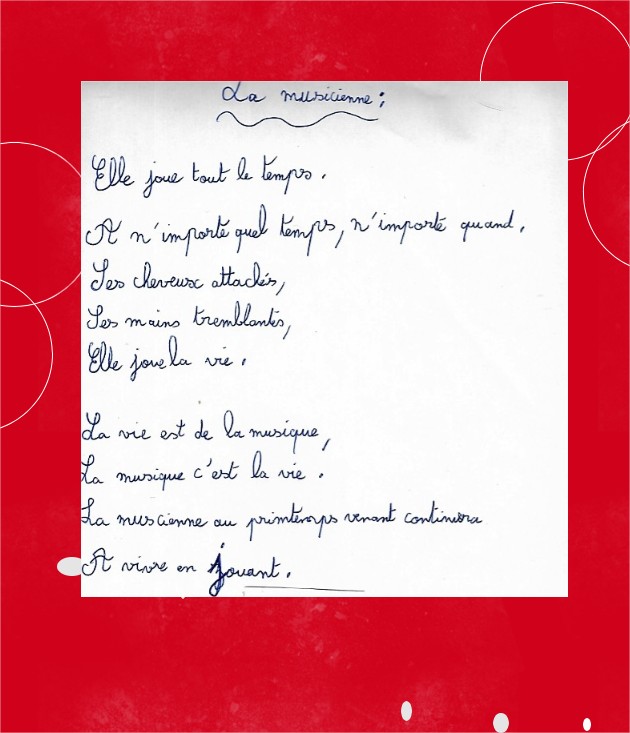 La musicienne :
Elle joue tout le temps .
A n'importe quel temps, n'importe quand.
Ses cheveux attachés,
Ses mains tremblantes,
Elle joue la vie .
La vie est de la musique,
La musique c'est la vie .
La muscienne au printemps venant continura
A vivre en jouant .